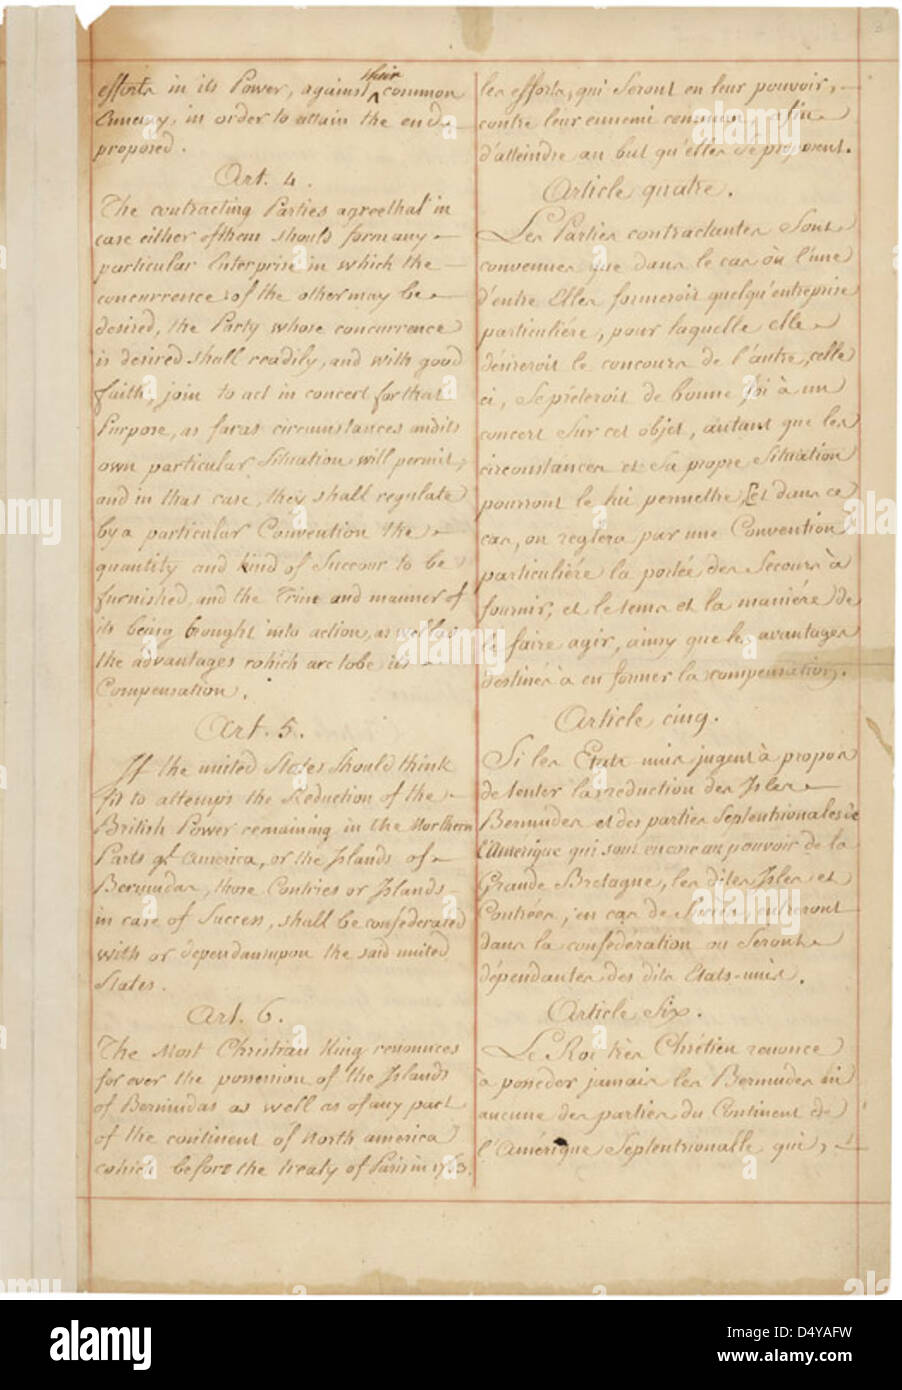 efforts in its Power, against their common
Ennemy, in order to attain the end
proposed.
Art. 4.
The contracting Parties agree that in
case either of them should form any
particular Enterprise in which the
concurrence of the other may be
desired, the Party whose concurrence
is desired shall readily, and with good
faith, join to act in concert for that
Purpose, as far as circumstances and its
own particular Situation will permit,
and in that case, they shall regulate
by a particular Convention the
quantity and kind of Succour to be
furnished, and the Time and manner of
its being brought into action, as well as
the advantages which are to be its
Compensation.
Art. 5.
If the united States should think
fit to attempt the Reduction of the
British Power remaining in the Northern
Parts of America, or the Islands of
Bermudas, those Contries or Islands
in case of Success, shall be confederated
with or dependant upon the said united
States.
Art. 6.
The Most Christian King renounces
for ever the possession of the Islands
of Bermudas as well as of any part
of the continent of North america
which before the treaty of Paris in 1763.
les efforts, qui Seront en leur pouvoir,
contre leur ennemi commun, afin
d'atteindre au but qu'elles se proposent.
Article quatre.
Les Parties contractantes Sont
convenues que dans le cas où l'une
d'entre Elles formeroit quelqu'entreprise
particuliére, pour laquelle elle
désireroit le concours de l'autre, celle
ci, Se prêteroit de bonne foi à un
concert Sur cet objet, autant que les
circonstances et Sa propre Situation
pourront le lui permettre, et dans ce
cas, on reglera par une Convention
particuliére la portée des Secours à
fournir, et le tems et la maniére de
le faire agir, ainsy que les avantages
destinés à en former la compensation.
Article cinq.
Si les Etats unis jugent à propos
de tenter la réduction des Isles
Bermudes et des parties Septentrionales de
l'Amérique qui sont encore au pouvoir de la
Grande Bretagne, les dites Isles et
Contrées, en cas de Succès, entreront
dans la confédération ou Seront
dépendantes des dits Etats-unis.
Article Six.
Le Roi très Chrétien renonce
à posseder jamais les Bermudes ni
aucune des parties du Continent de
l'Amérique Septentrionalle qui,
alamy
Image ID: D4YAFW
www.alamy.com